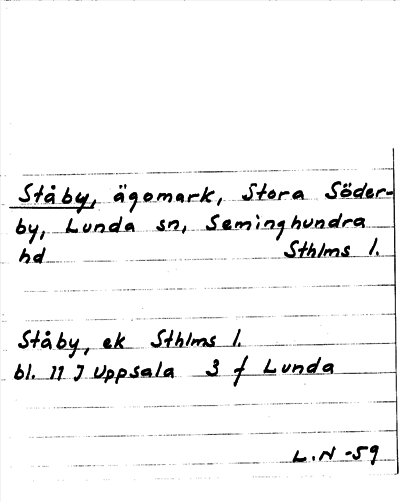 Ståby, ägomark, Stora Söder-
by, Lunda sn, Seminghundra
hd Sthlms l.
Ståby, ek Sthlms l.
bl. 11 J Uppsala 3 f Lunda
L.N -59